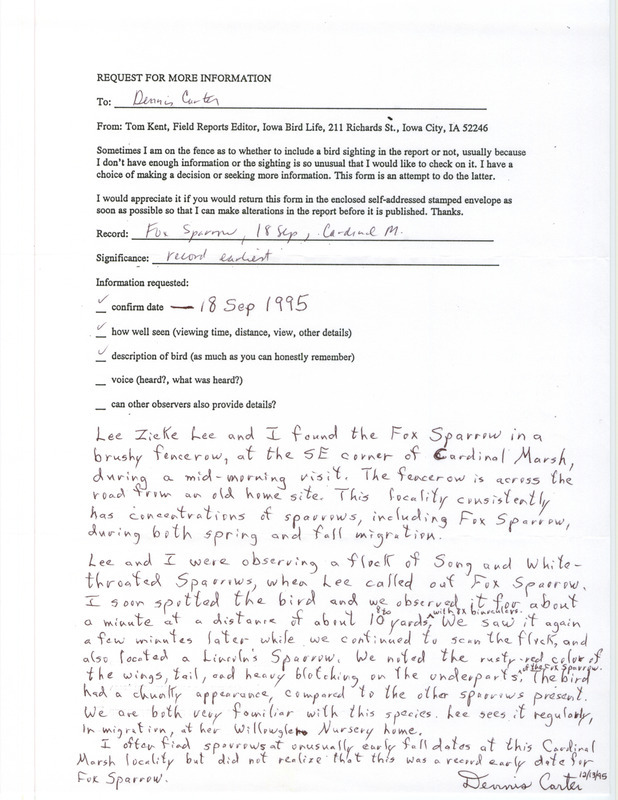 REQUEST FOR MORE INFORMATION
To: Dennis Carter
From: Tom Kent, Field Reports Editor, Iowa Bird Life, 211 Richards St., Iowa City, IA 52246
Sometimes I am on the fence as to whether to include a bird sighting in the report or not, usually because
I don't have enough information or the sighting is so unusual that I would like to check on it. I have a
choice of making a decision or seeking more information. This form is an attempt to do the latter.
I would appreciate it if you would return this form in the enclosed self-addressed stamped envelope as
soon as possible so that I can make alterations in the report before it is published. Thanks.
Record: Fox Sparrow, 18 Sep, Cardinal M.
Significance: record earliest
Information requested:
✓ confirm date — 18 Sep 1995
✓ how well seen (viewing time, distance, view, other details)
✓ description of bird (as much as you can honestly remember)
__ voice (heard?, what was heard?)
__ can other observers also provide details?
Lee Zieke Lee and I found the Fox Sparrow in a
brushy fencerow, at the SE corner of Cardinal Marsh,
during a mid-morning visit. The fencerow is across the
road from an old home site. This locality consistently
has concentrations of sparrows, including Fox Sparrow,
during both spring and fall migration.
Lee and I were observing a flock of Song and White-
throated Sparrows, when Lee called out Fox Sparrow.
I soon spotted the bird and we observed it for about
a minute at a distance of about 8 to 10 yards, with 8x binoculars. We saw it again
a few minutes later while we continued to scan the flock, and
also located a Lincoln's Sparrow. We noted the rusty-red color of
the wings, tail, and heavy blotching on the underparts, of the Fox Sparrow. The bird
had a chunky appearance, compared to the other sparrows present.
We are both very familiar with this species. Lee sees it regularly,
in migration, at her Willowglen Nursery home.
I often find sparrows at unusually early fall dates at this Cardinal
Marsh locality but did not realize that this was a record early date for
Fox Sparrow.
Dennis Carter 12/13/95